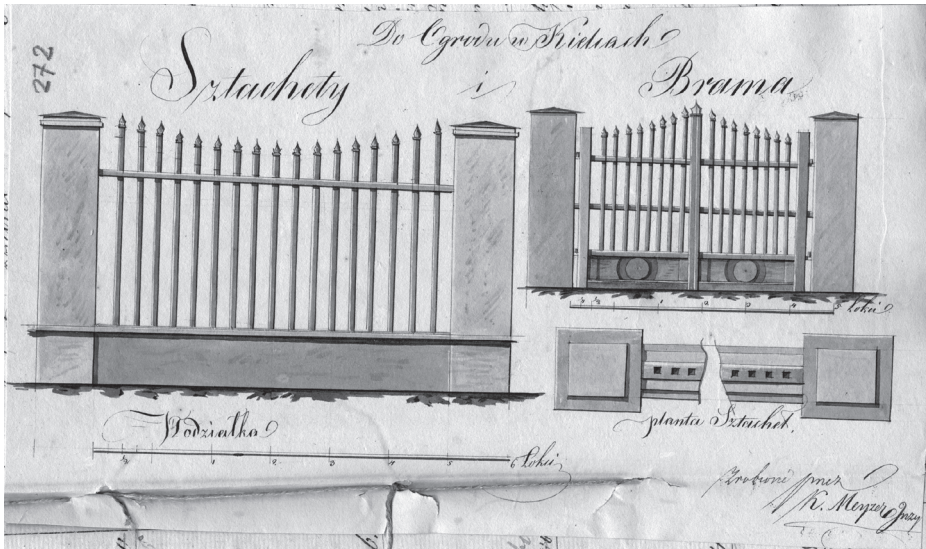 272
Do Ogrodu w Kielcach
Sztachety i Brama
5 Łokci
planta Sztachet.
Podziałka
1 2 3 4 5 6 Łokci
Zrobione przez
K. Meyzer Inży